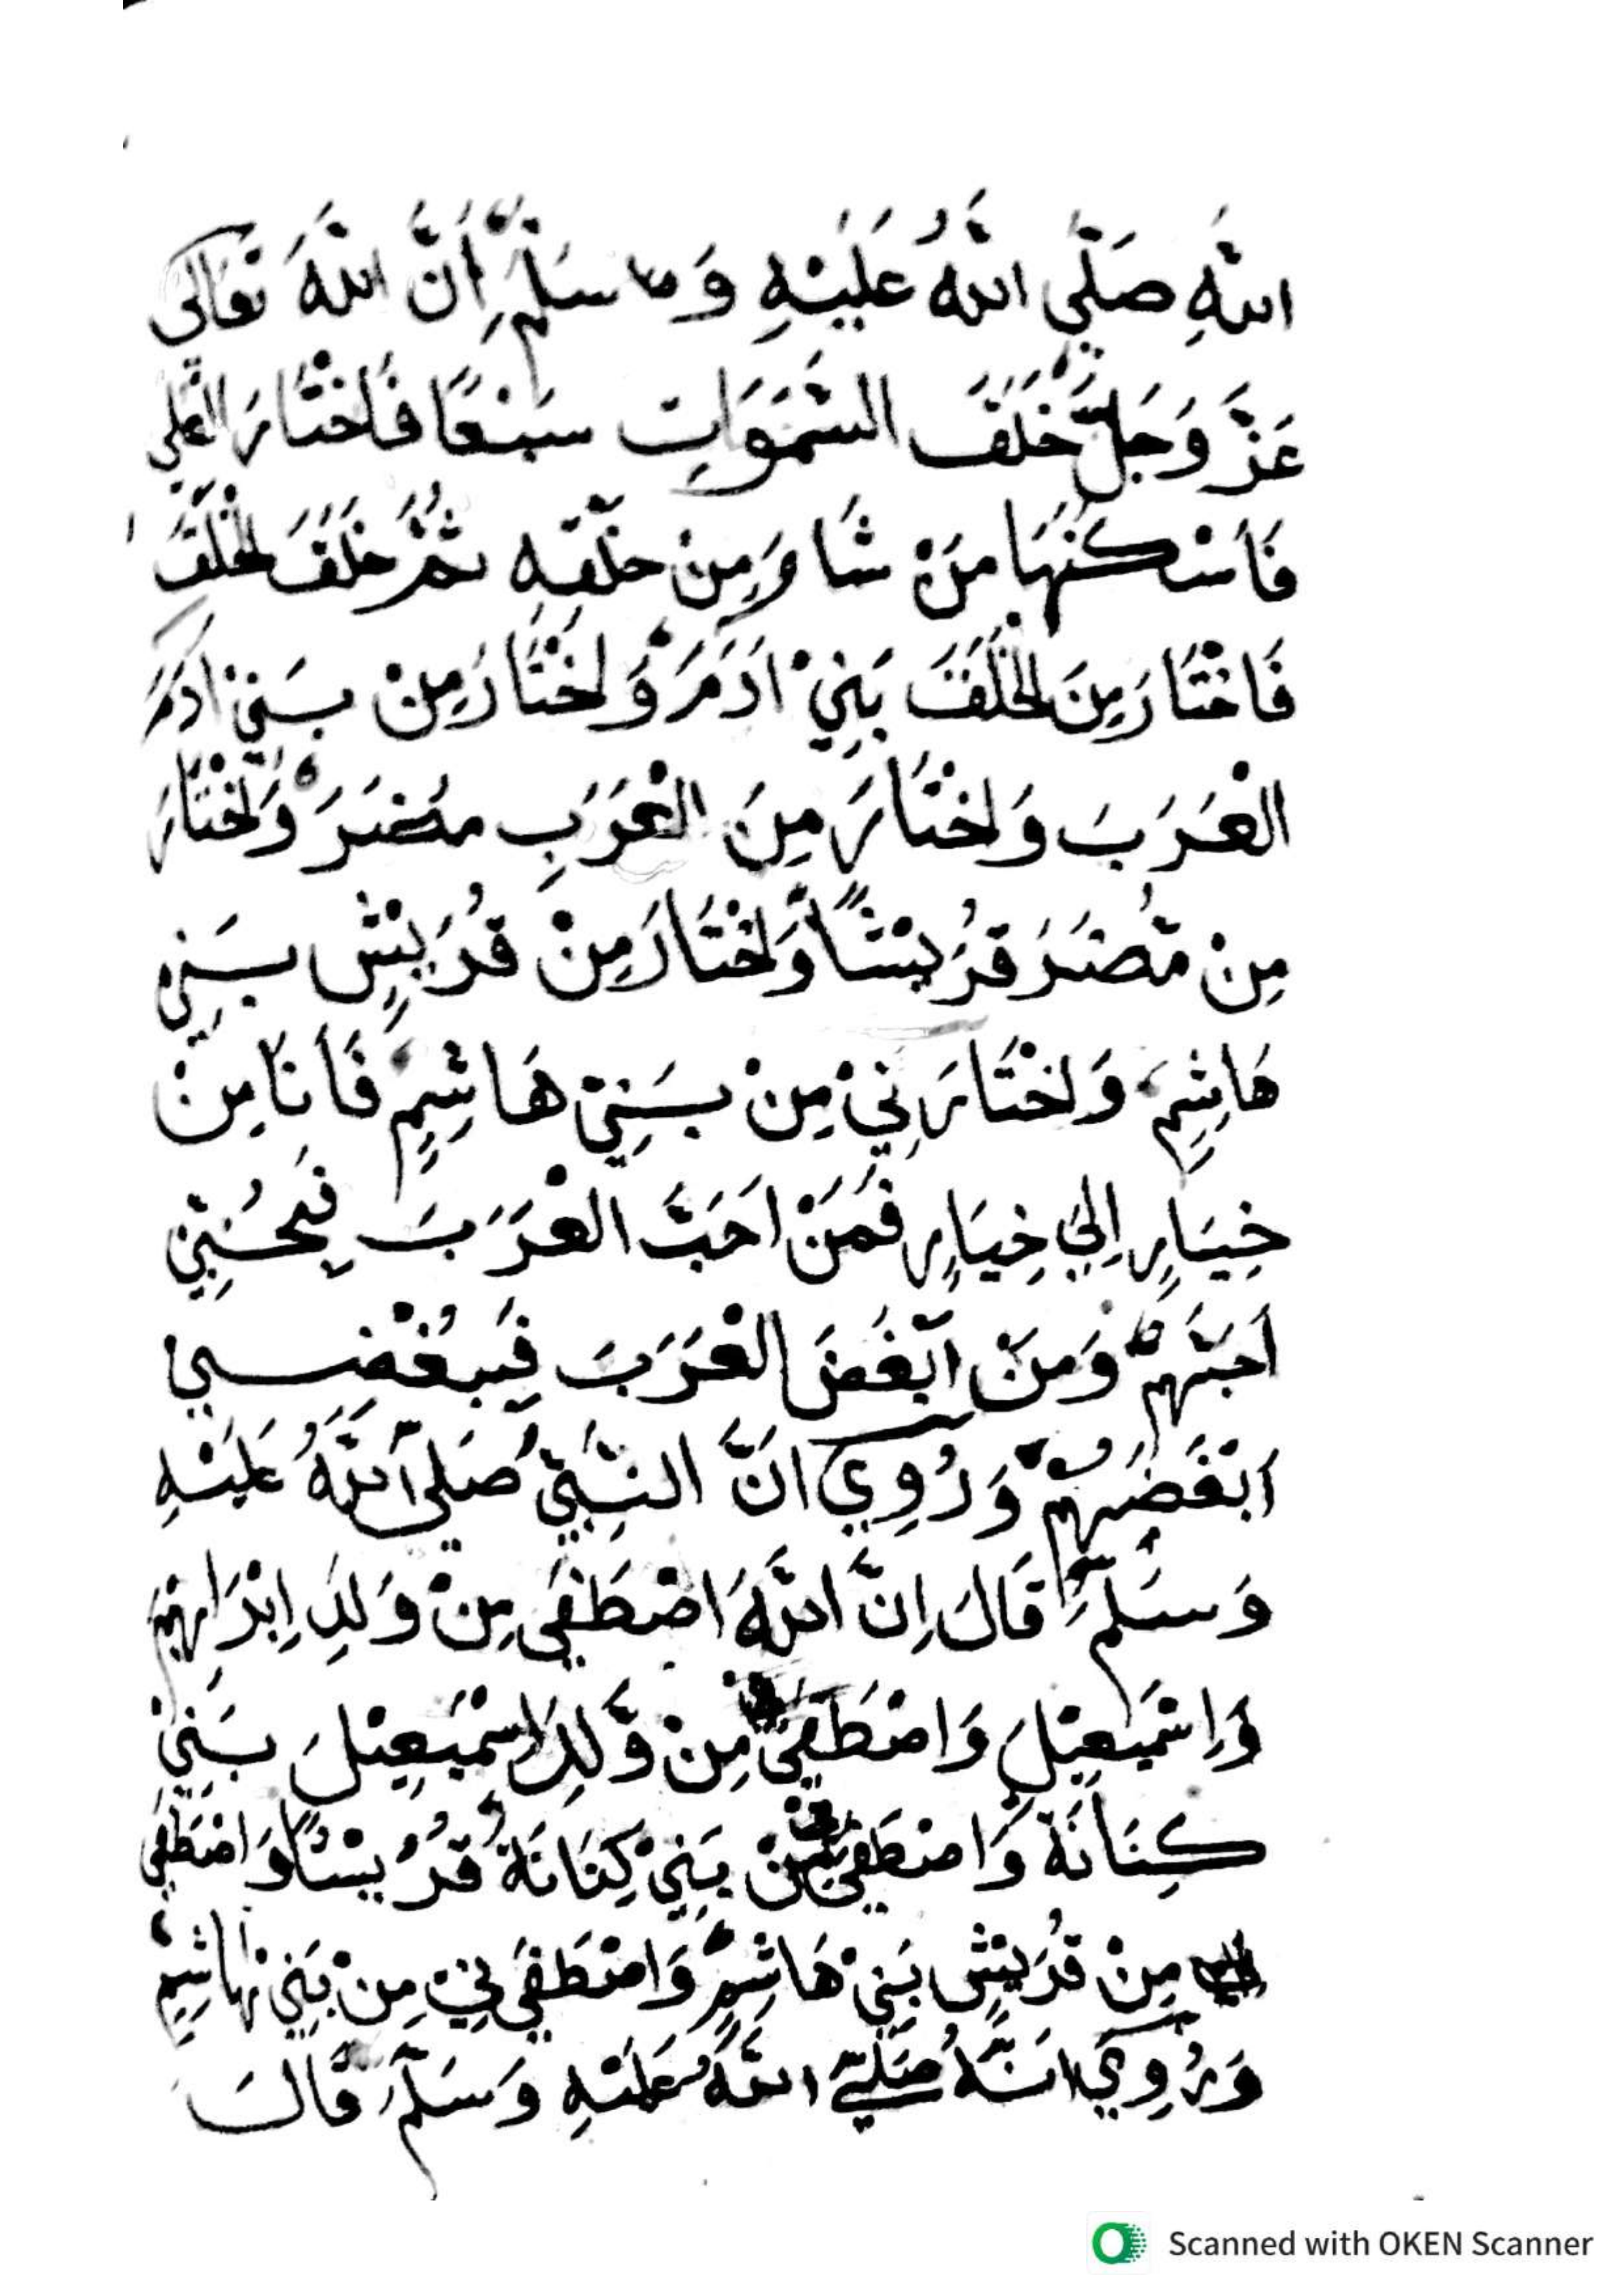 اللّٰهِ صَلَّي اللّٰهُ عَلَيْهِ وَسَلَّمَ أَنَّ اللّٰهَ تَعَالَى
عَزَّ وَجَلَّ خَلَقَ السَّمَوَاتِ سَبْعًا فَاخْتَارَ الْعُلَى
فَأَسْكَنَهَا مَنْ شَاءَ مِنْ خَلْقِهِ ثُمَّ خَلَقَ الْخَلْقَ
فَاخْتَارَ مِنَ الْخَلْقِ بَنِيْ اٰدَمَ وَاخْتَارَ مِنْ بَنِيْ اٰدَمَ
الْعَرَبَ وَاخْتَارَ مِنَ الْعَرَبِ مُضَرَ وَاخْتَارَ
مِنْ مُّضَرَ قُرَيْشًا وَاخْتَارَ مِنْ قُرَيْشٍ بَنِيْ
هَاشِمٍ وَاخْتَارَنِيْ مِنْ بَنِيْ هَاشِمٍ فَأَنَا مِنْ
خِيَارٍ اِلَي خِيَارٍ فَمَنْ اَحَبَّ الْعَرَبَ فَبِحُبِّيْ
اَحَبَّهُمْ وَمَنْ اَبْغَضَ الْعَرَبَ فَبِبُغْضِيْ
اَبْغَضَهُمْ وَرُوِيَ اَنَّ النَّبِيَّ صَلَّي اللّٰهُ عَلَيْهِ
وَسَلَّمَ قَالَ اِنَّ اللّٰهَ اصْطَفَي مِنْ وَلَدِ اِبْرَاهِيْمَ
وَاِسْمٰعِيْلَ وَاصْطَفَي مِنْ وَّلَدِ اِسْمٰعِيْلَ بَنِيْ
كِنَانَةَ وَاصْطَفَي مِنْ بَنِيْ كِنَانَةَ قُرَيْشًا وَاصْطَفَي
مِنْ قُرَيْشٍ بَنِيْ هَاشِمٍ وَاصْطَفَي نِيْ مِنْ بَنِيْ هَاشِمٍ
وَرُوِيَ اَنَّهُ صَلَّي اللّٰهُ عَلَيْهِ وَسَلَّمَ قَالَ
Scanned with OKEN Scanner